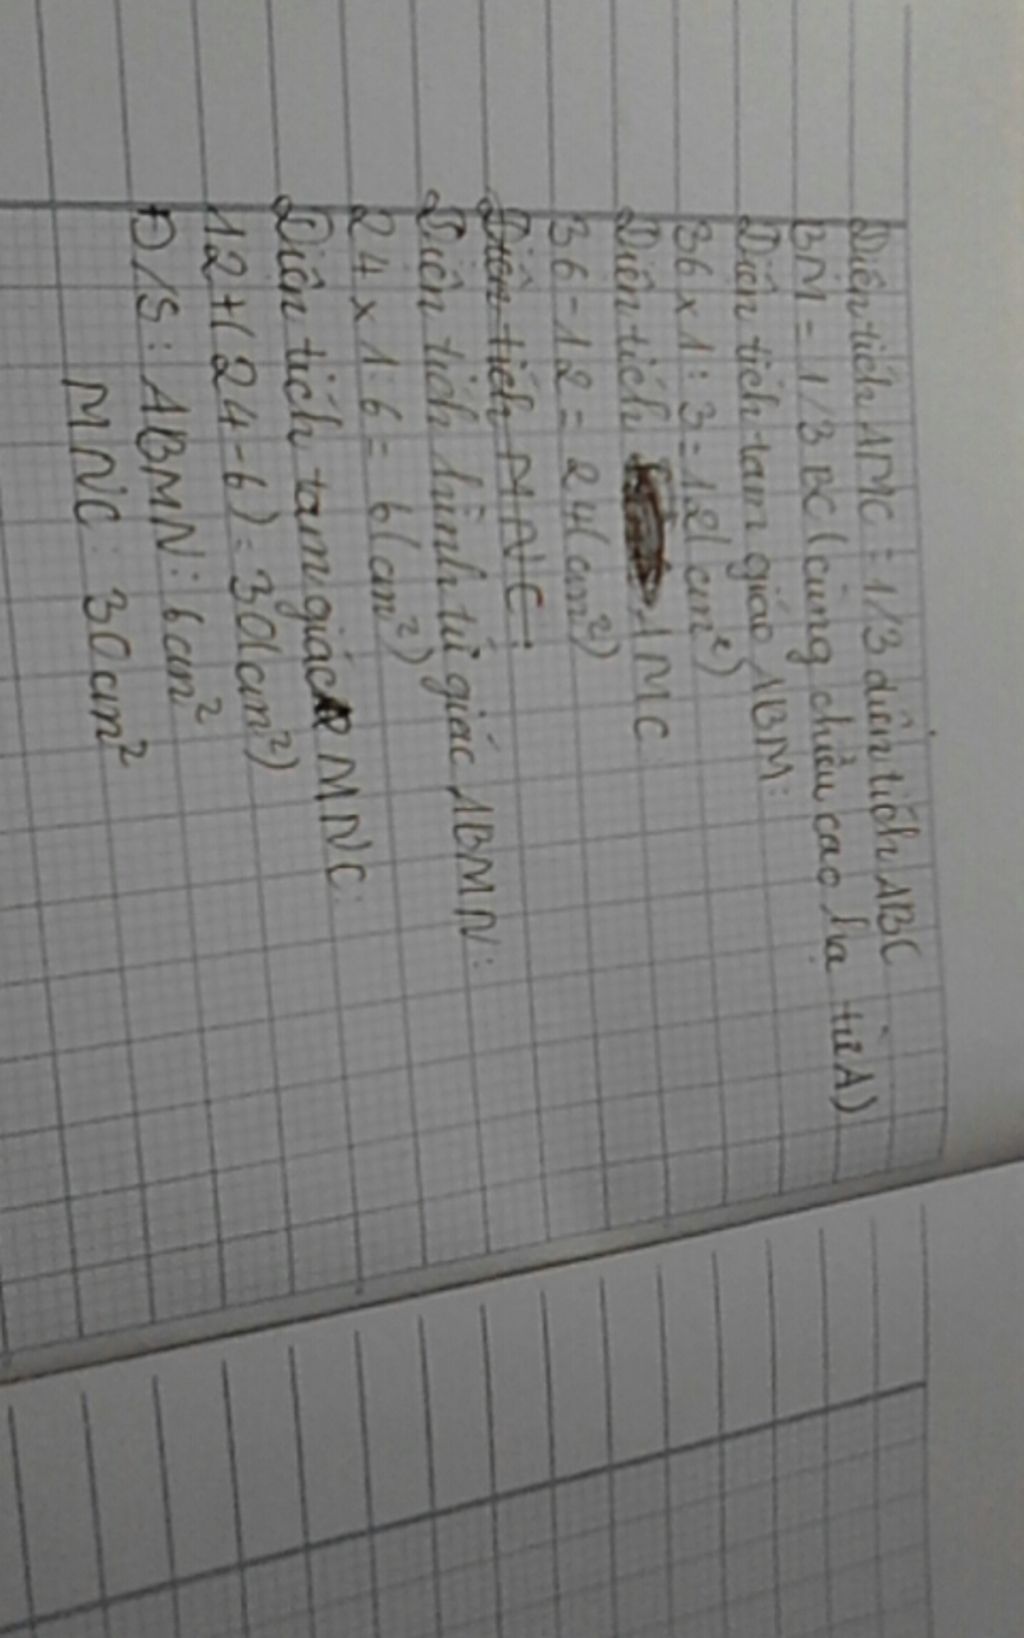 Diện tích AMC = 1/3 diện tích ABC
BM = 1/3 BC (cùng chiều cao hạ từ A)
Diện tích tam giác ABM:
36 x 1 : 3 = 12 (cm²)
Diện tích AMC
36 - 12 = 24 (cm²)
Diện tích MNC:
Diện tích hình tứ giác ABMN:
24 x 1 : 6 = 6 (cm²)
Diện tích tam giác MNC:
12 + (24 - 6) = 30 (cm²)
Đ/S: ABMN: 6 cm²
MNC: 30 cm²